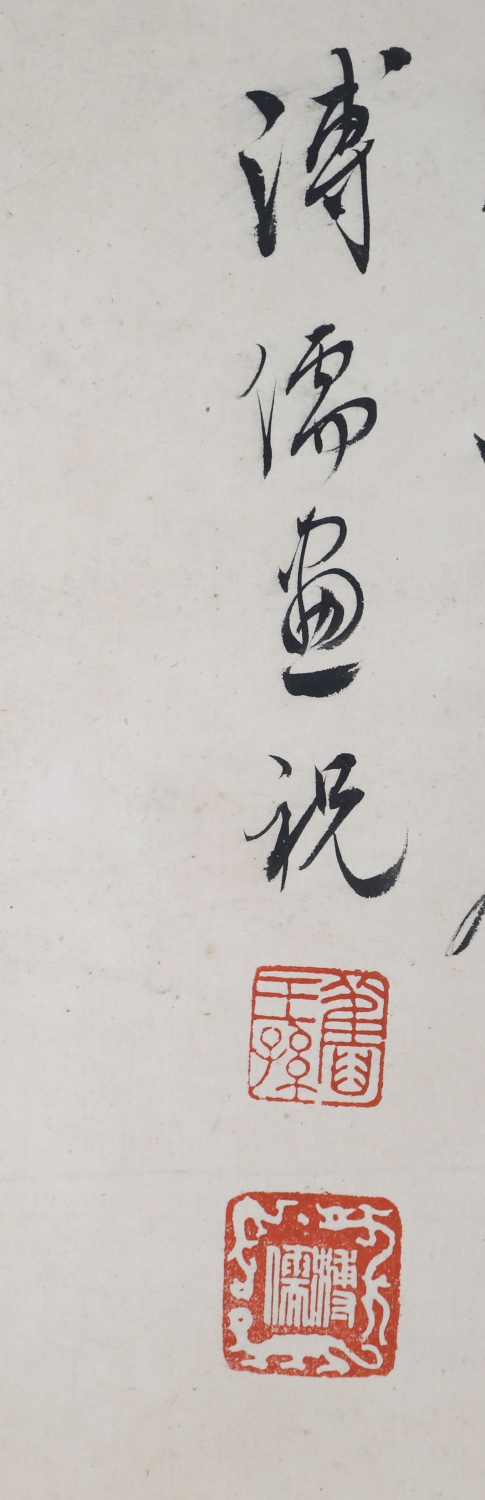 溥儒畫祝
舊王孫
溥儒